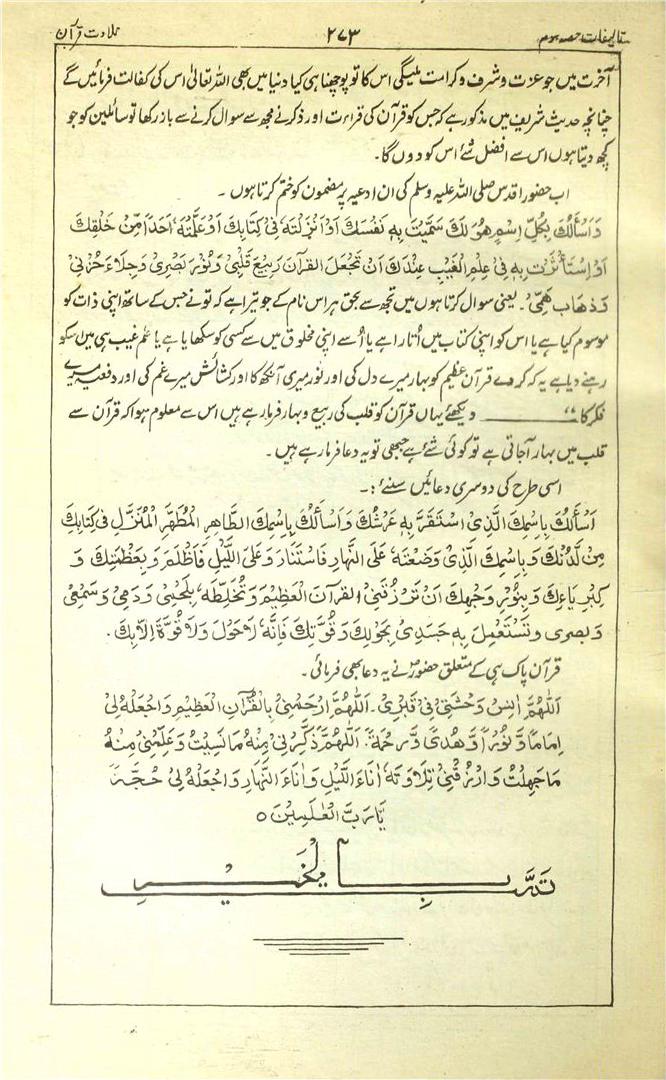 مقالیفات حصہ سوم ۲۷۳ تلاوت قرآن
آخرت میں جو عزت و شرف و کرامت ملیگی اس کا تو پوچھنا ہی کیا دنیا میں بھی اللہ تعالیٰ اس کی کفالت فرمائیں گے
چنانچہ حدیث شریف میں مذکور ہے کہ جس کو قرآن کی قراءت اور ذکر نے مجھ سے سوال کرنے سے باز رکھا تو سائلین کو جو
کچھ دیتا ہوں اس سے افضل شئے اس کو دوں گا۔
اب حضور اقدس صلی اللہ علیہ وسلم کی ان ادعیہ پر مضمون کو ختم کرتا ہوں ۔
وَاَسْأَلُكَ بِكُلِّ اِسْمٍ هُوَ لَكَ سَمَّيْتَ بِهٖ نَفْسَكَ اَوْ اَنْزَلْتَهٗ فِیْ كِتَابِكَ اَوْ عَلَّمْتَهٗ اَحَدًا مِّنْ خَلْقِكَ
اَوِ اسْتَأْثَرْتَ بِهٖ فِیْ عِلْمِ الْغَيْبِ عِنْدَكَ اَنْ تَجْعَلَ الْقُرْآنَ رَبِيْعَ قَلْبِیْ وَنُوْرَ بَصَرِیْ وَجِلَاءَ حُزْنِیْ
وَذِهَابَ هَمِّیْ ۔ یعنی سوال کرتا ہوں میں تجھ سے بحق ہر اس نام کے جو تیرا ہے کہ تو نے جس کے ساتھ اپنی ذات کو
موسوم کیا ہے یا اس کو اپنی کتاب میں اُتارا ہے یا اُسے اپنی مخلوق میں سے کسی کو سکھایا ہے یا علم غیب ہی میں اسکو
رہنے دیا ہے یہ کہ کر دے قرآن عظیم کو بہار میرے دل کی اور نور میری آنکھ کا اور کشائش میرے غم کی اور دفعیہ میرے
فکر کا ،، ـــــــــ دیکھئے یہاں قرآن کو قلب کی ربیع و بہار فرما رہے ہیں اس سے معلوم ہوا کہ قرآن سے
قلب میں بہار آجاتی ہے تو کوئی شئے ہے جبھی تو یہ دعا فرما رہے ہیں ۔
اسی طرح کی دوسری دعائیں سنئے :۔
اَسْأَلُكَ بِاسْمِكَ الَّذِیْ اسْتَقَرَّ بِهٖ عَرْشُكَ وَاَسْأَلُكَ بِاسْمِكَ الطَّاهِرِ الْمُطَهَّرِ الْمُنَزَّلِ فِیْ كِتَابِكَ
مِنْ لَّدُنْكَ وَبِاسْمِكَ الَّذِیْ وَضَعْتَهٗ عَلَی النَّهَارِ فَاسْتَنَارَ وَعَلَی اللَّيْلِ فَاَظْلَمَ وَبِعَظْمَتِكَ وَ
كِبْرِيَاءِكَ وَبِنُوْرِ وَجْهِكَ اَنْ تَرْزُقَنِیْ الْقُرْآنَ الْعَظِيْمَ وَتُخَلِّطَهٗ بِلَحْمِیْ وَدَمِیْ وَسَمْعِیْ
وَبَصَرِیْ وَتَسْتَعْمِلَ بِهٖ جَسَدِیْ بِحَوْلِكَ وَقُوَّتِكَ فَاِنَّهٗ لَا حَوْلَ وَلَا قُوَّةَ اِلَّا بِكَ ۔
قرآن پاک ہی کے متعلق حضورؐ نے یہ دعا بھی فرمائی ۔
اَللّٰهُمَّ اٰنِسْ وَحْشَتِیْ فِیْ قَبْرِیْ ۔ اَللّٰهُمَّ ارْحَمْنِیْ بِالْقُرْآنِ الْعَظِيْمِ وَاجْعَلْهُ لِیْ
اِمَامًا وَّنُوْرًا وَّهُدًی وَّرَحْمَةً ۔ اَللّٰهُمَّ ذَكِّرْنِیْ مِنْهُ مَا نَسِيْتُ وَعَلِّمْنِیْ مِنْهُ
مَا جَهِلْتُ وَارْزُقْنِیْ تِلَاوَتَهٗ اٰنَاءَ اللَّيْلِ وَاٰنَاءَ النَّهَارِ وَاجْعَلْهُ لِیْ حُجَّةً
يَّا رَبَّ الْعٰلَمِيْنَ ۝
تَمَّتْ بِالْخَيْرِ